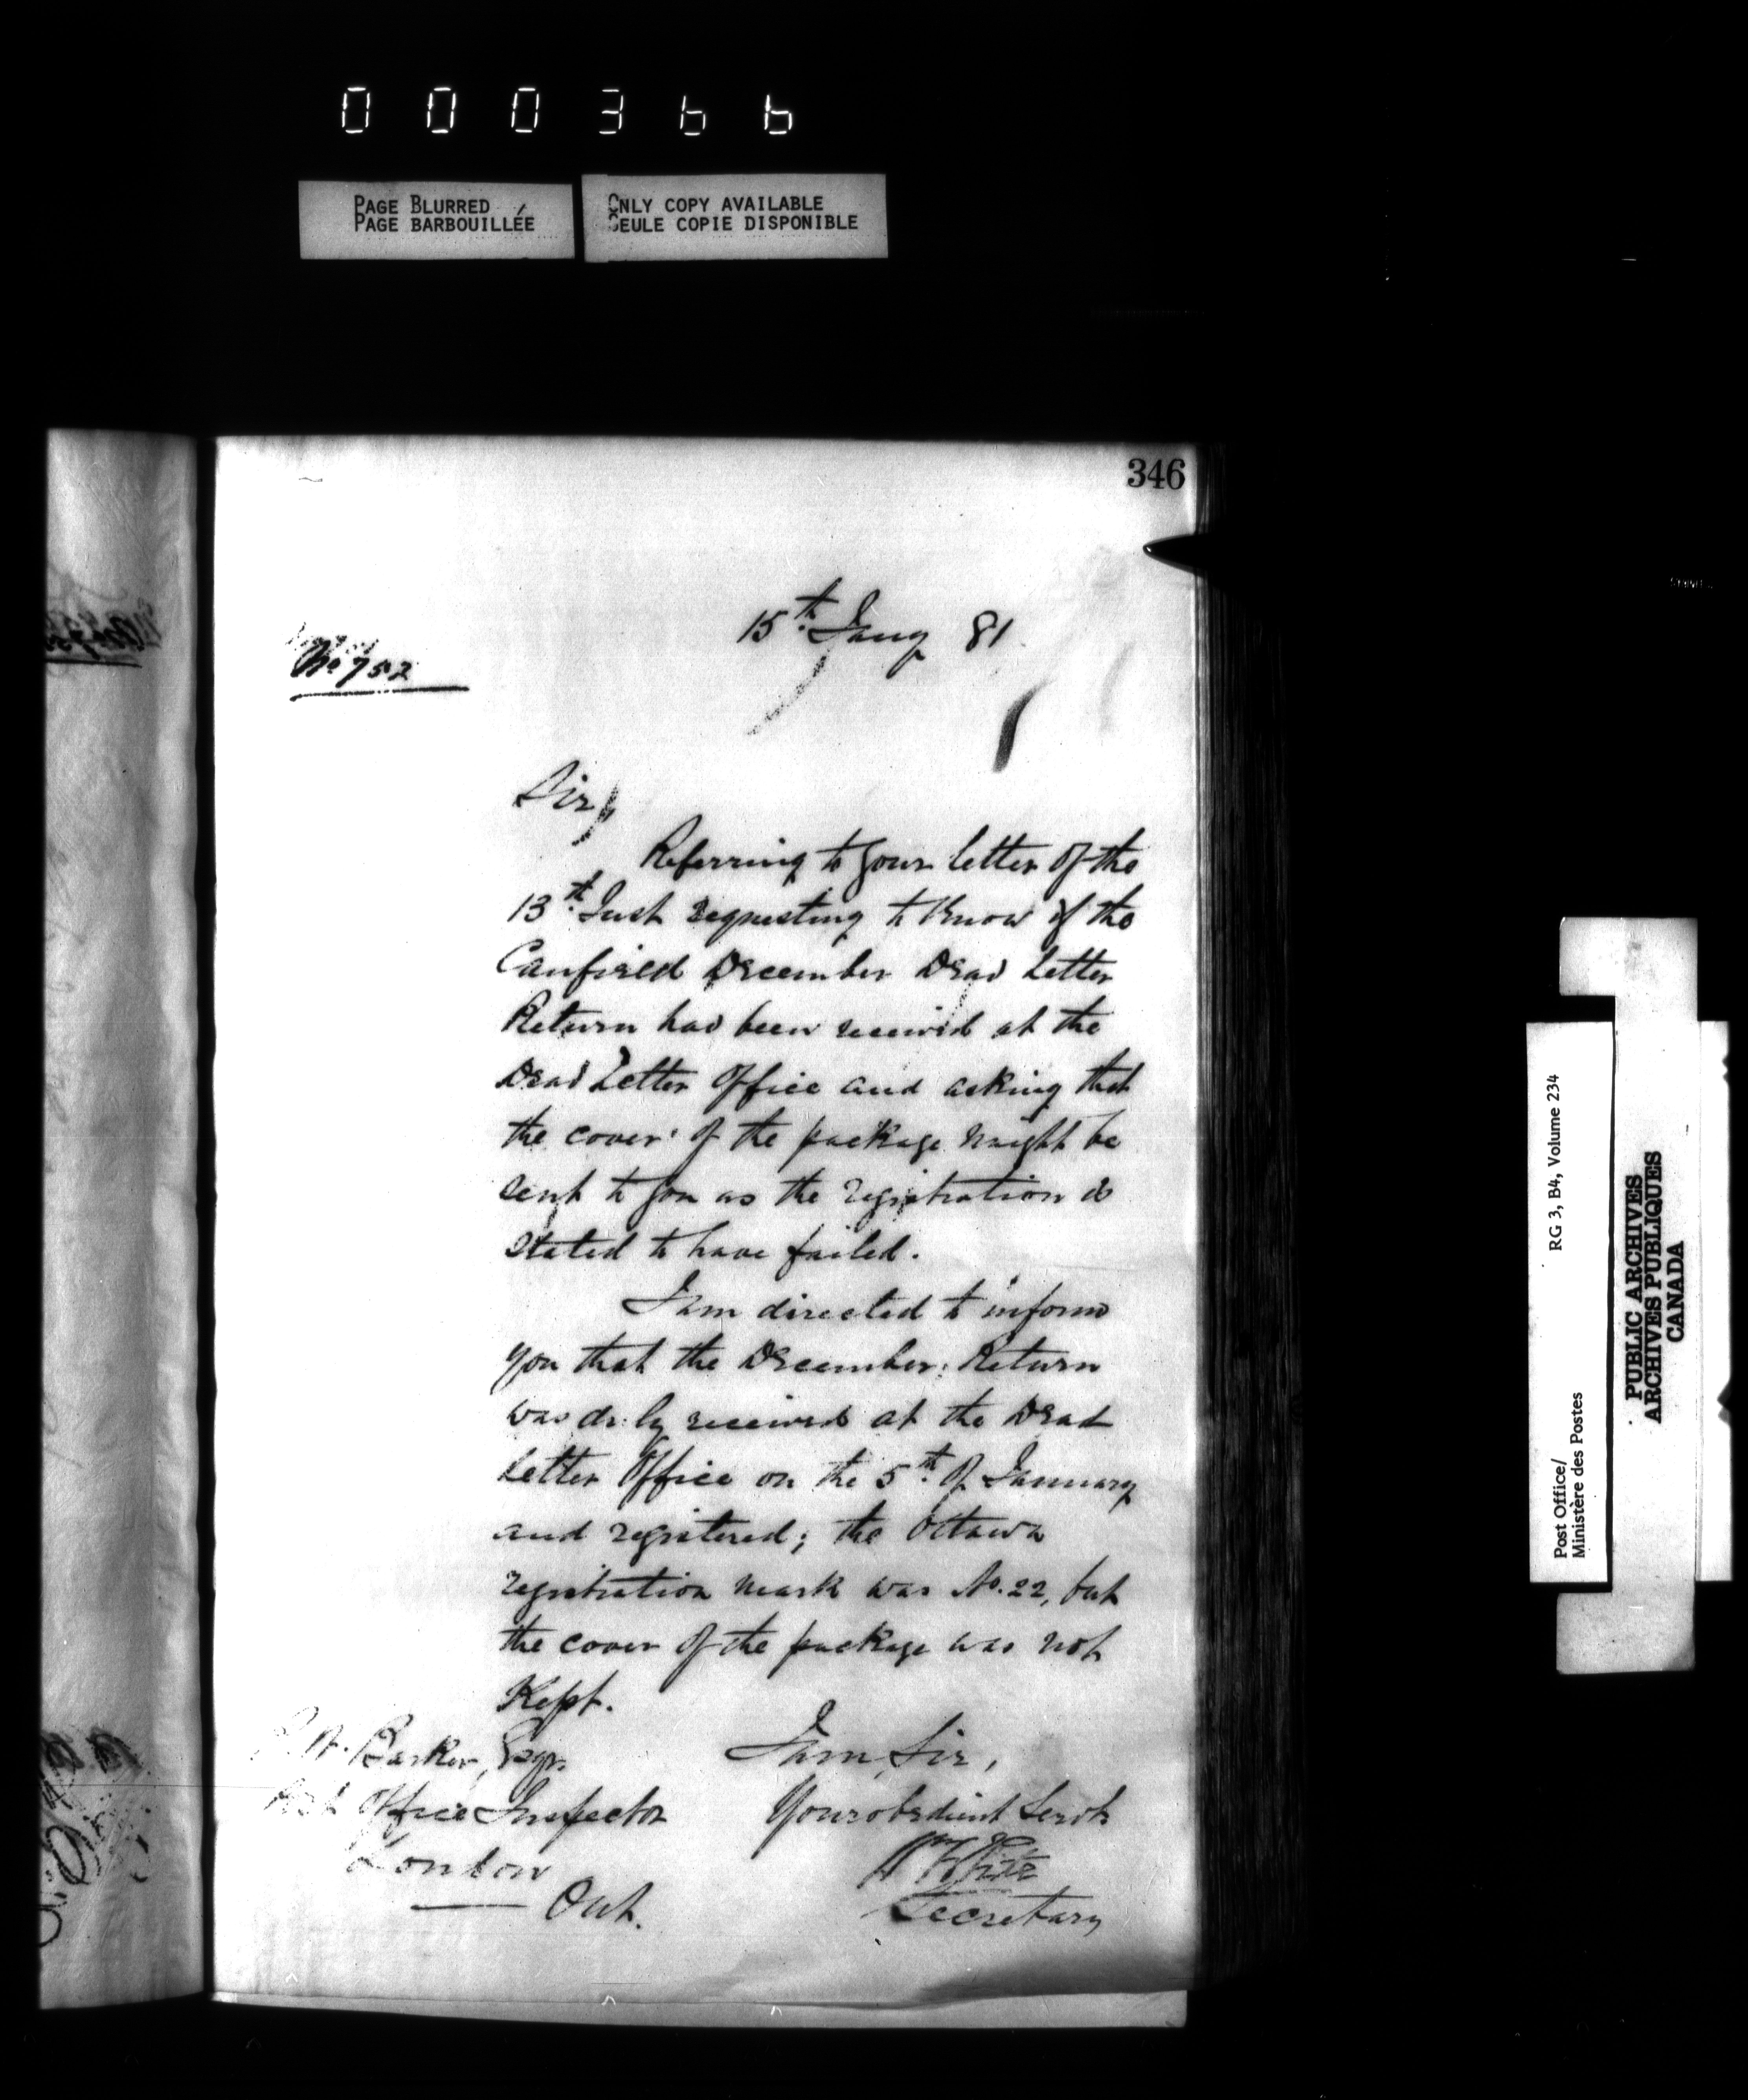 000366
PAGE BLURRED
PAGE BARBOUILLÉE
ONLY COPY AVAILABLE
SEULE COPIE DISPONIBLE
346
15th. Jany 81
No 752
Sir,
Referring to your letter of the
13th. Inst requesting to know if the
Canfield December Dead Letter
Return had been received at the
Dead Letter Office and asking that
the cover of the package might be
sent to you as the registration is
stated to have failed.
I am directed to inform
you that the December Return
was duly received at the Dead
Letter Office on the 5th. of January
and registered; the Ottawa
registration mark was No. 22, but
the cover of the package was not
Kept.
I am, Sir,
Your obedient Servt
White
Secretary
Barker, Esqr.
Post Office Inspector
London
Ont.
Post Office/
Ministère des Postes
RG 3, B4, Volume 234
PUBLIC ARCHIVES
ARCHIVES PUBLIQUES
CANADA